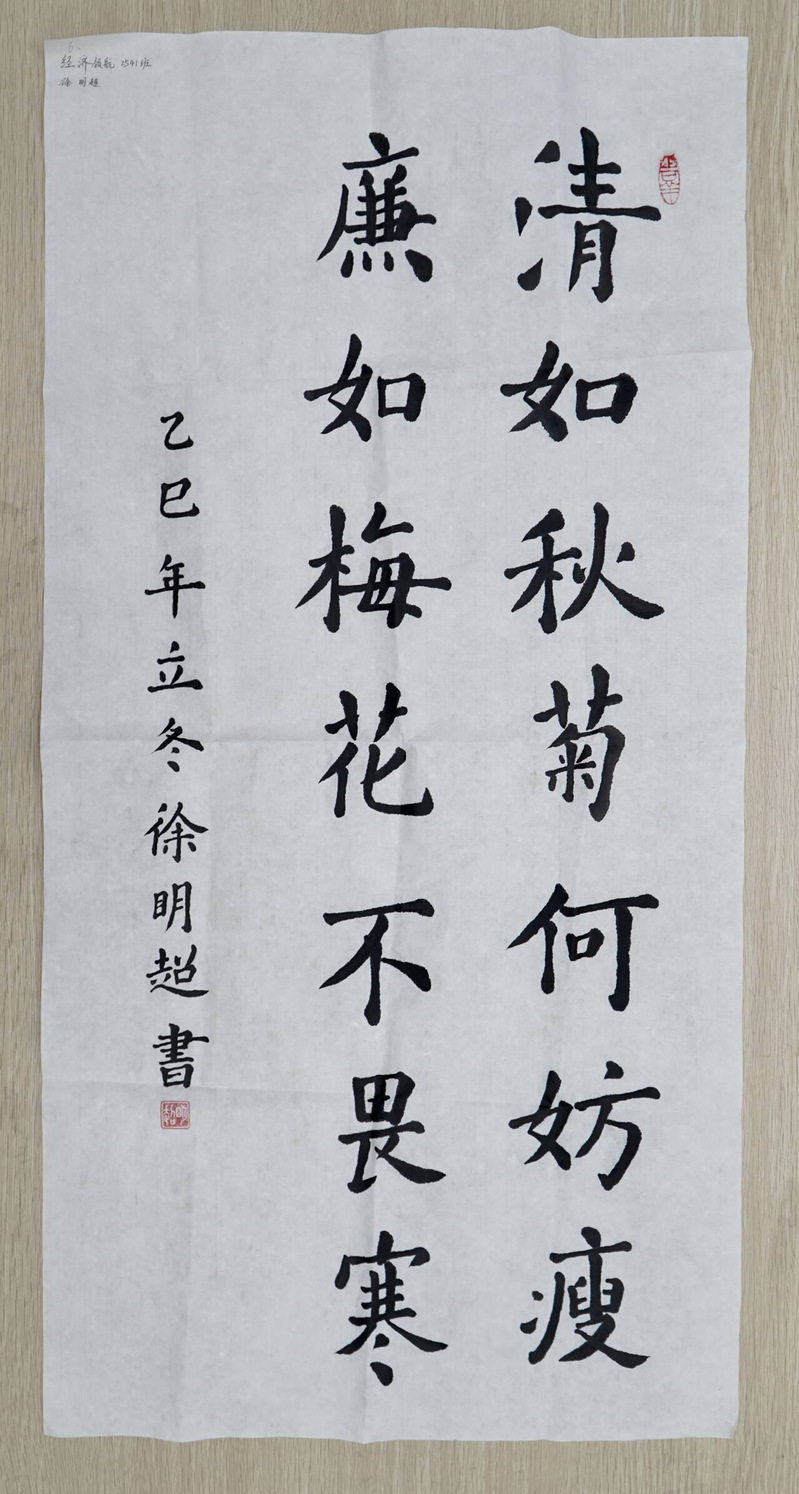 清如秋菊何妨瘦
廉如梅花不畏寒
乙巳年立冬徐明超書
经济领航2541班
徐明超